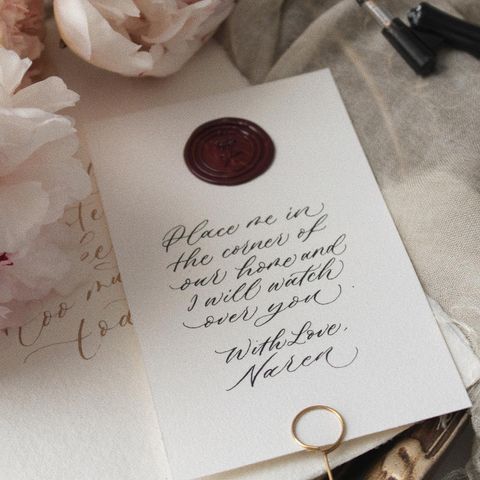 Place me in
the corner of
our home and
I will watch
over you.
With Love,
Naren
too mu
toda